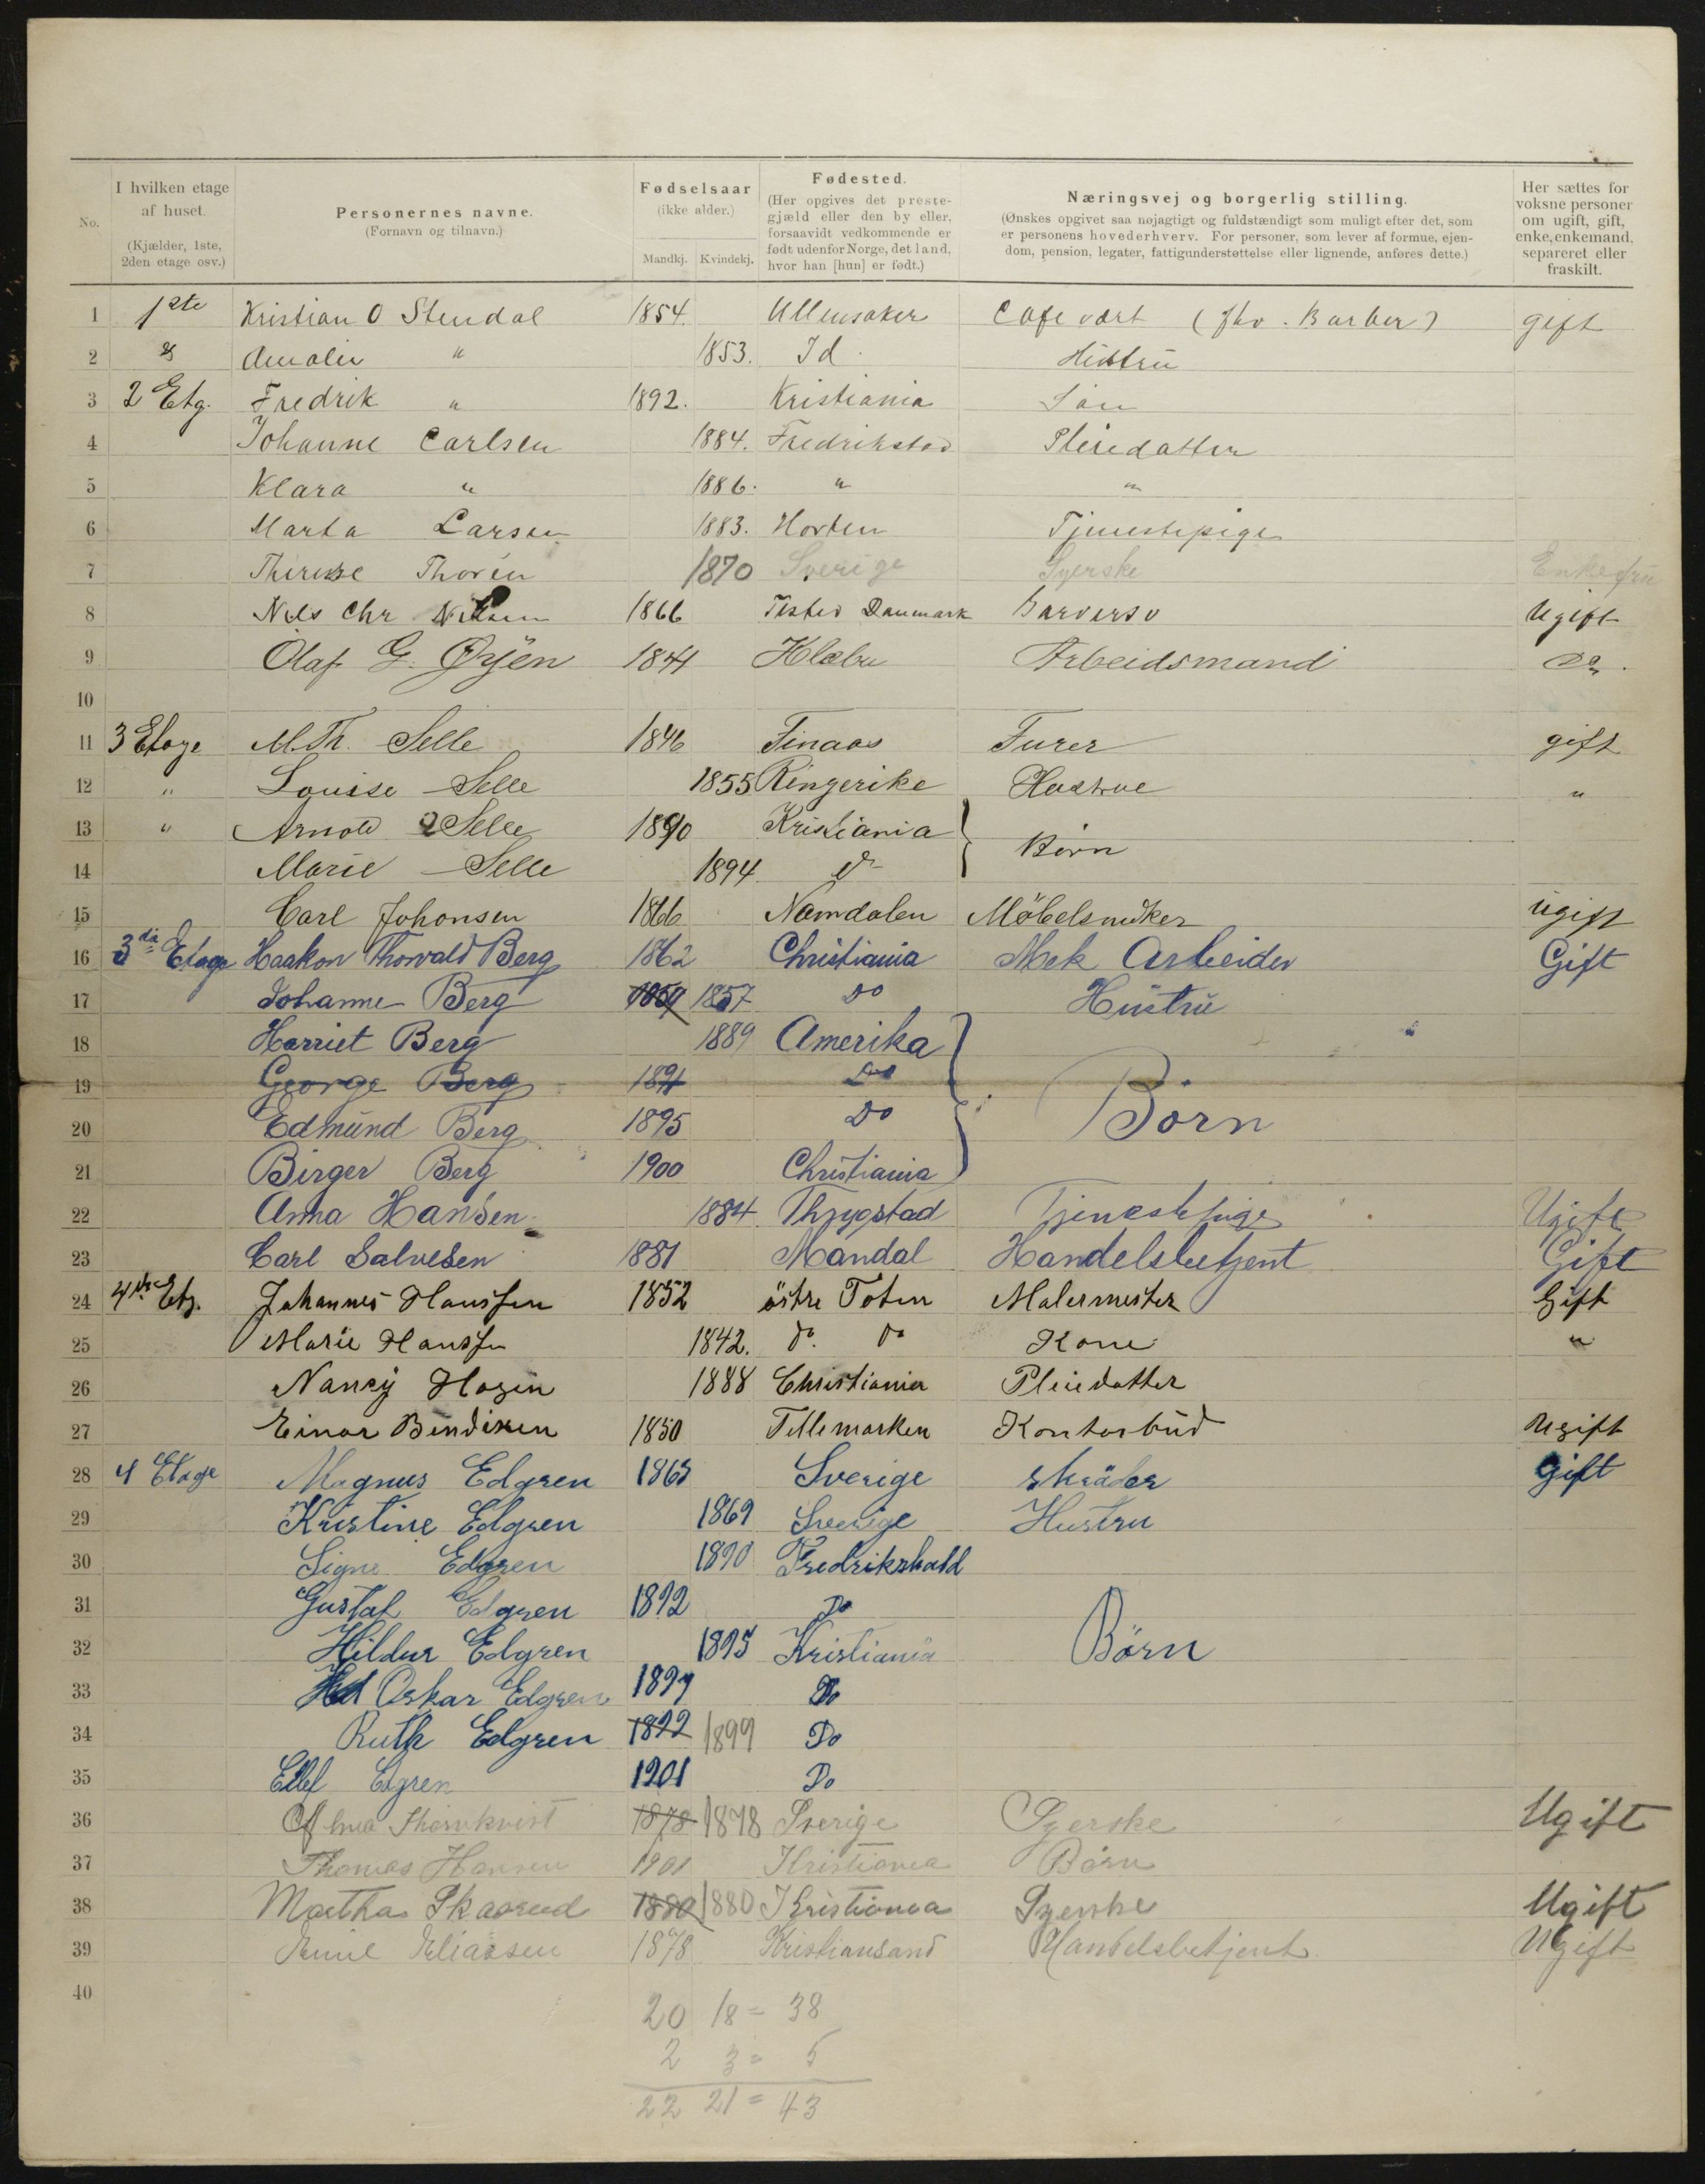 I hvilken etage af huset. (Kjælder, 1ste, 2den etage osv.)
No.
Personernes navne. (Fornavn og tilnavn.)
Fødselsaar (ikke alder.) Mandkj. Kvindekj.
Fødested. (Her opgives det prestegjæld eller den by eller, forsaavidt vedkommende er født udenfor Norge, det land, hvor han [hun] er født.)
Næringsvej og borgerlig stilling. (Ønskes opgivet saa nøjagtigt og fuldstændigt som muligt efter det, som er personens hovederhverv. For personer, som lever af formue, ejendom, pension, legater, fattigunderstøttelse eller lignende, anføres dette.)
Her sættes for voksne personer om ugift, gift, enke, enkemand, separeret eller fraskilt.
1 1ste Kristian O Stendal 1854. Ullensaker Cafevært (fhv. Barber) gift
2 Amalie " 1853. Id. Hustru
3 2 Etg. Fredrik " 1892. Kristiania Søn
4 Johanne Carlsen 1884. Fredrikstad Pleiedatter
5 Klara " 1886. " "
6 Marta Larsen 1883. Horten Tjenestepige
7 Therese Thorén 1870 Sverige Syerske Enkefru
8 Nils Chr Nilsen 1866 Tisted Danmark Ugift
9 Olaf G. Øyen 1844 Klæbu Arbeidsmand do.
10
11 3 Etage M. Th. Selle 1846 Finaas Furer gift
12 " Louise Selle 1855 Ringerike Hustrue "
13 " Arnold Selle 1890 Kristiania Børn
14 Marie Selle 1894 do
15 Carl Johansen 1866 Namdalen Möbelsnedker ugift
16 3die Etage Haakon Thorvald Berg 1862 Christiania Mek Arbeider Gift
17 Johanne Berg 1857 Do Hustru
18 Harriet Berg 1889 Amerika
19 George Berg 1891 Do
20 Edmund Berg 1895 Do Börn
21 Birger Berg 1900 Christiania
22 Anna Hansen 1884 Thrygstad Tjenestepige Ugift
23 Carl Salvesen 1881 Mandal Handelsbetjent Gift
24 4de Etg. Johannes Hanssen 1852 östre Toten Malermester Gift
25 Marie Hanssen 1842. do. do Kone "
26 Nancy Hagen 1888 Christiania Pleiedatter
27 Einar Bendixen 1850 Tellemarken Kontorbud Ugift
28 4 Etage Magnus Edgren 1865 Sverige skräder gift
29 Kristine Edgren 1869 Sverige Hustru
30 Signe Edgren 1890 Fredrikshald
31 Gustaf Edgren 1892 Do
32 Hildur Edgren 1895 Kristiania Børn
33 Oskar Edgren 1897 Do
34 Ruth Edgren 1899 1899 Do
35 Ellef Edgren 1901 Do
36 Thornkvist 1878 1878 Sverige Syerske Ugift
37 Thomas Hansen 1901 Kristiania Børn
38 Martha Skaarud 1880 1880 Kristiania Syerske Ugift
39 Emil Eliassen 1878 Kristiansand Handelsbetjent Ugift
40
20 18 = 38
2 3 = 5
22 21 = 43